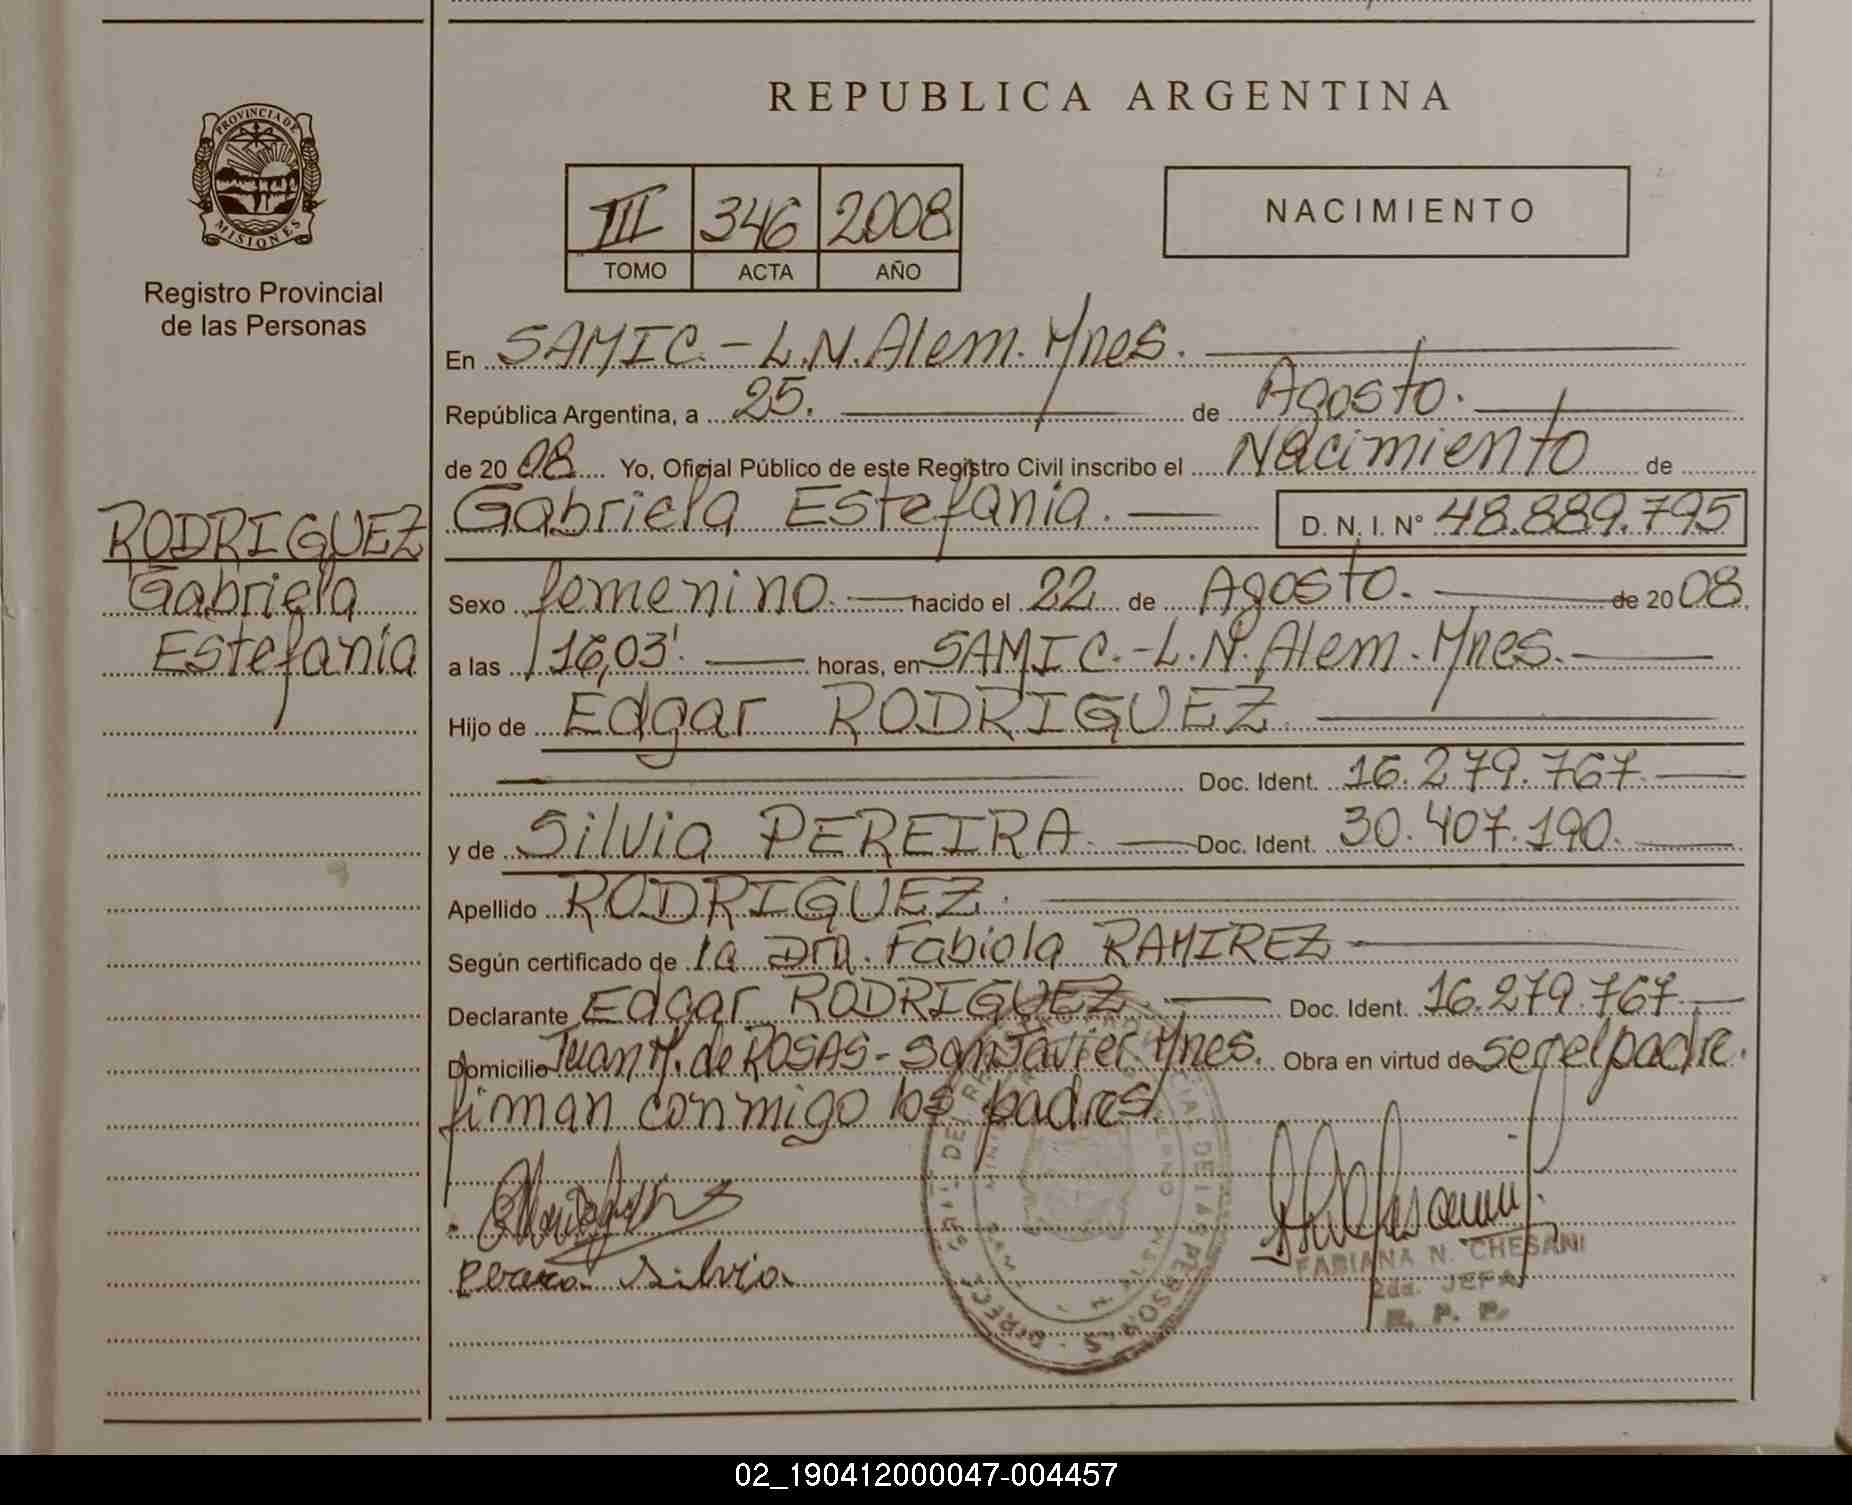 REPUBLICA ARGENTINA
PROVINCIA DE MISIONES
Registro Provincial
de las Personas
III 346 2008
TOMO ACTA AÑO
NACIMIENTO
En SAMIC.-L.N.Alem.Mnes.
República Argentina, a 25. de Agosto.
de 2008 Yo, Oficial Público de este Registro Civil inscribo el Nacimiento de
Gabriela Estefania. D. N. I. N° 48.889.795
RODRIGUEZ
Gabriela
Estefania
Sexo femenino. nacido el 22 de Agosto. de 2008.
a las 16,03'. horas, en SAMIC.-L.N.Alem.Mnes.
Hijo de Edgar RODRIGUEZ.
Doc. Ident. 16.279.767.
y de Silvia PEREIRA. Doc. Ident. 30.407.190.
Apellido RODRIGUEZ.
Según certificado de la Dra. Fabiola RAMIREZ
Declarante Edgar RODRIGUEZ. Doc. Ident. 16.279.767.
Domicilio Juan M. de ROSAS-San Javier. Mnes. Obra en virtud de ser el padre.
firman conmigo los padres.
Silvia
FABIANA N. CHESANI
2da. JEFA
R. P. P.
02_190412000047-004457